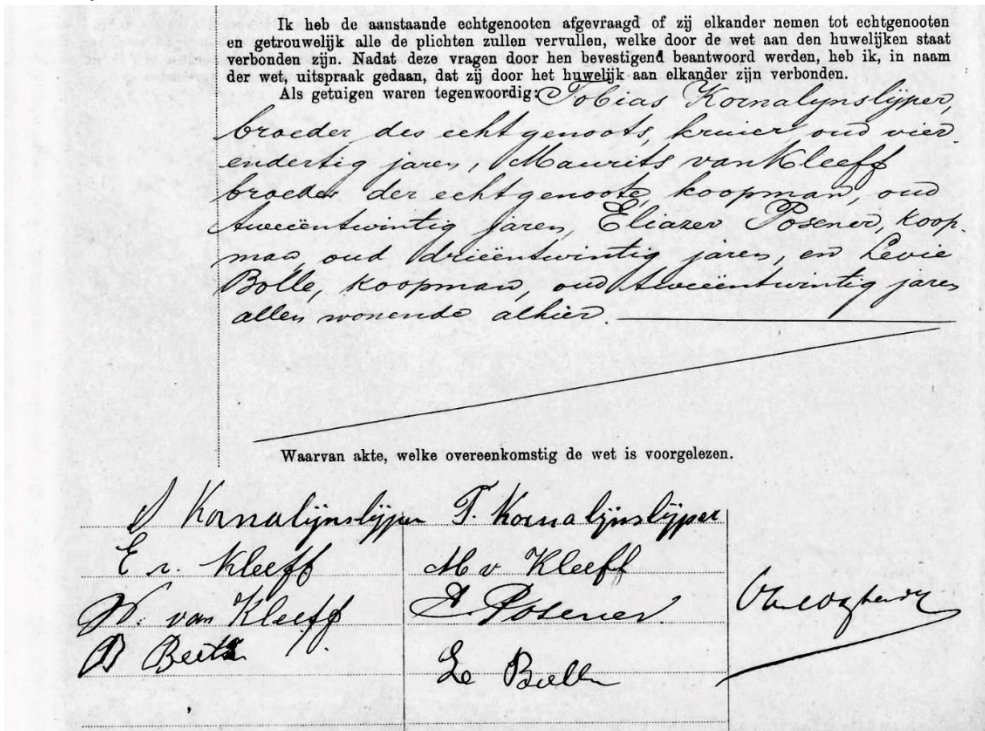 Ik heb de aanstaande echtgenooten afgevraagd of zij elkander nemen tot echtgenooten
en getrouwelijk alle de plichten zullen vervullen, welke door de wet aan den huwelijken staat
verbonden zijn. Nadat deze vragen door hen bevestigend beantwoord werden, heb ik, in naam
der wet, uitspraak gedaan, dat zij door het huwelijk aan elkander zijn verbonden.
Als getuigen waren tegenwoordig: Tobias Kornalijnslijper,
broeder des echtgenoots, kruier oud vier
endertig jaren, Maurits van Kleeff
broeder der echtgenoote, koopman, oud
tweeëntwintig jaren, Eliazer Posener, koop-
man, oud drieëntwintig jaren, en Levie
Bolle, koopman, oud tweeëntwintig jaren
allen wonende alhier.
Waarvan akte, welke overeenkomstig de wet is voorgelezen.
Kornalijnslijper T. Kornalijnslijper
E v. Kleeff M v Kleeff
van Kleeff Posener
B Beetz Le Bolle